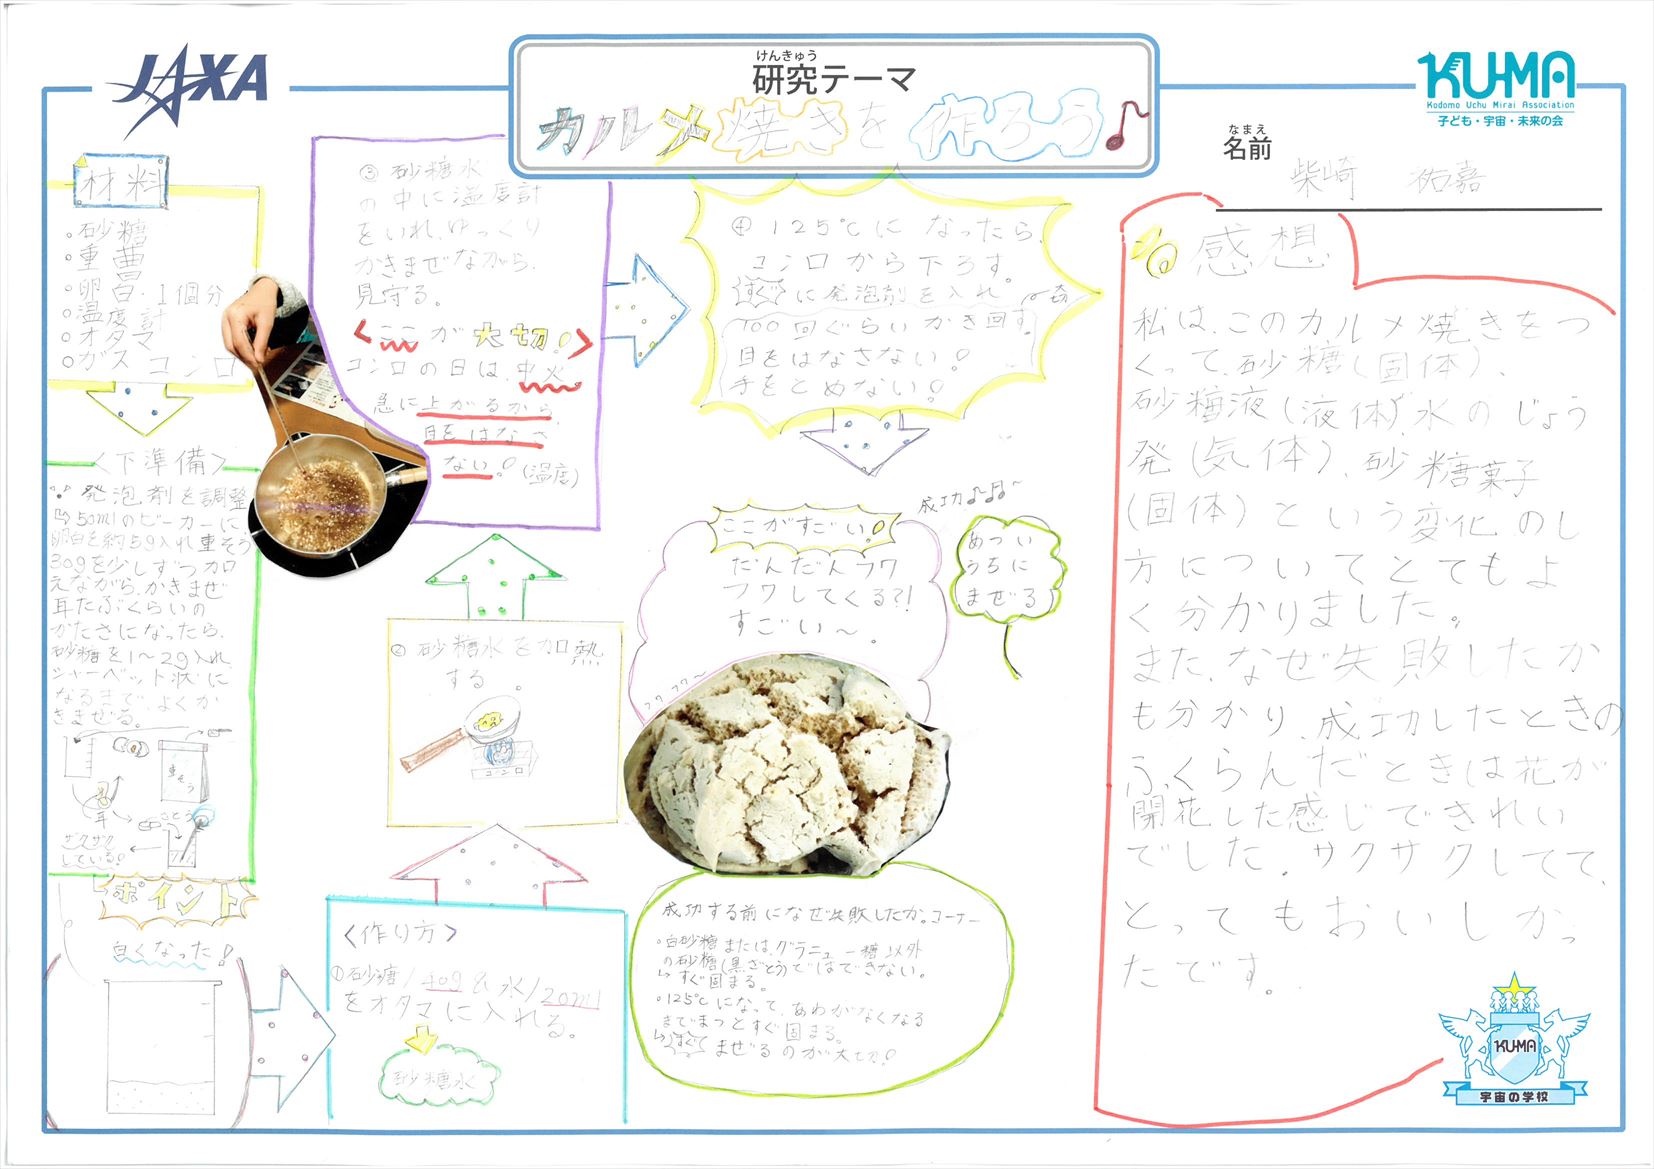 JAXA
けんきゅう
研究テーマ
カルメ焼きを作ろう♪
KUMA
Kodomo Uchu Mirai Association
子ども・宇宙・未来の会
なまえ
名前
柴崎 祐嘉
材料
○砂糖
○重曹
○卵白.1個分
○温度計
○オタマ
○ガスコンロ
<下準備>
発泡剤を調整
50mlのビーカーに
卵白を約5g入れ重そう
30gを少しずつ加
えながら、かきまぜ
耳たぶくらいの
かたさになったら、
砂糖を1〜2g入れ
シャーベット状に
なるまで、よくか
きまぜる。
重そう
耳
さとう
ザクザク
している!
ポイント
白くなった!
<作り方>
①砂糖/40g&水/20ml
をオタマに入れる。
砂糖水
②砂糖水を加熱
する
コンロ
③砂糖水
の中に温度計
をいれ、ゆっくり
かきまぜながら、
見守る。
<ここが大切!>
コンロの日は中火
急に上がるから
目をはなさ
ない!(温度)
④125℃になったら、
コンロから下ろす。
すぐに発泡剤を入れ
100回ぐらいかき回す。
目をはなさない!
手をとめない!
ここがすごい!
だんだんフワ
フワしてくる?!
すごい〜。
フワフワ〜
成功♪♬〜
あつい
うちに
まぜる
成功する前になぜ失敗したか。コーナー
・白砂糖またはグラニュー糖以外
の砂糖(黒ざとう)ではできない。
↳すぐ固まる。
・125℃になって、あわがなくなる
までまつとすぐ固まる。
↳すぐまぜるのが大切!
感想
私は、このカルメ焼きをつ
くって、砂糖(固体)、
砂糖液(液体)、水のじょう
発(気体)、砂糖菓子
(固体)という変化のし
方についてとてもよ
く分かりました。
また、なぜ失敗したか
も分かり、成功したときの
ふくらんだときは花が
開花した感じできれい
でした。サクサクしてて、
とってもおいしかっ
たです。
KUMA
宇宙の学校